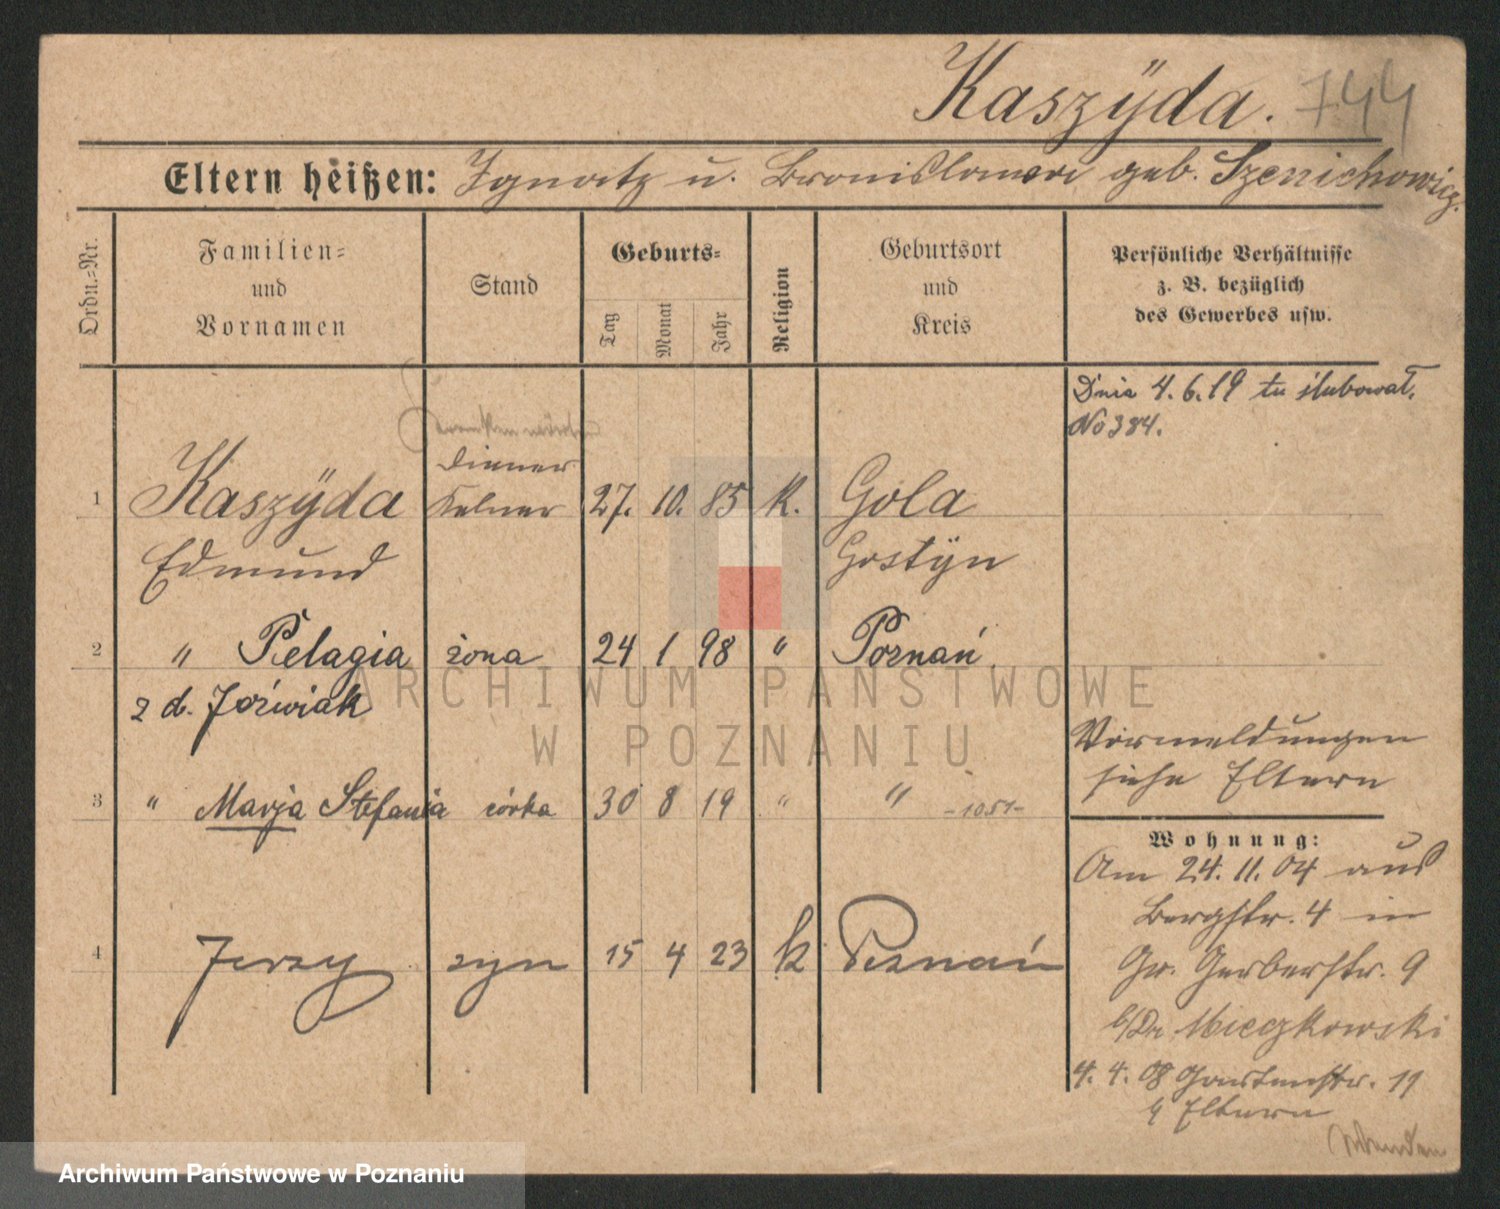 Kaszÿda. 744
Eltern heißen: Ignatz u. Bronislawa geb. Szenichowicz.
Ordn.=Nr.
Familien= und Vornamen
Stand
Geburts=
Tag
Monat
Jahr
Religion
Geburtsort und Kreis
Persönliche Verhältnisse
z. B. bezüglich
des Gewerbes usw.
Dnia 4.6.19 tu ślubował.
No 384.
Diener
1 Kaszÿda Kelner 27. 10. 85 K. Gola
Edmund Gostÿn
2 " Pelagia żona 24 1 98 " Poznań
z d. Jóźwiak
Vormeldungen
siehe Eltern
3 " Marja Stefania córka 30 8 19 " " -1051-
Wohnung:
Am 24. 11. 04 aus
Bergstr. 4 in
4 Jerzy syn 15 4 23 k Poznań
Gr. Gerberstr. 9
b/Dr. Mieczkowski
4. 4. 08 Gartenstr. 19
Eltern
ARCHIWUM PAŃSTWOWE
W POZNANIU
Archiwum Państwowe w Poznaniu